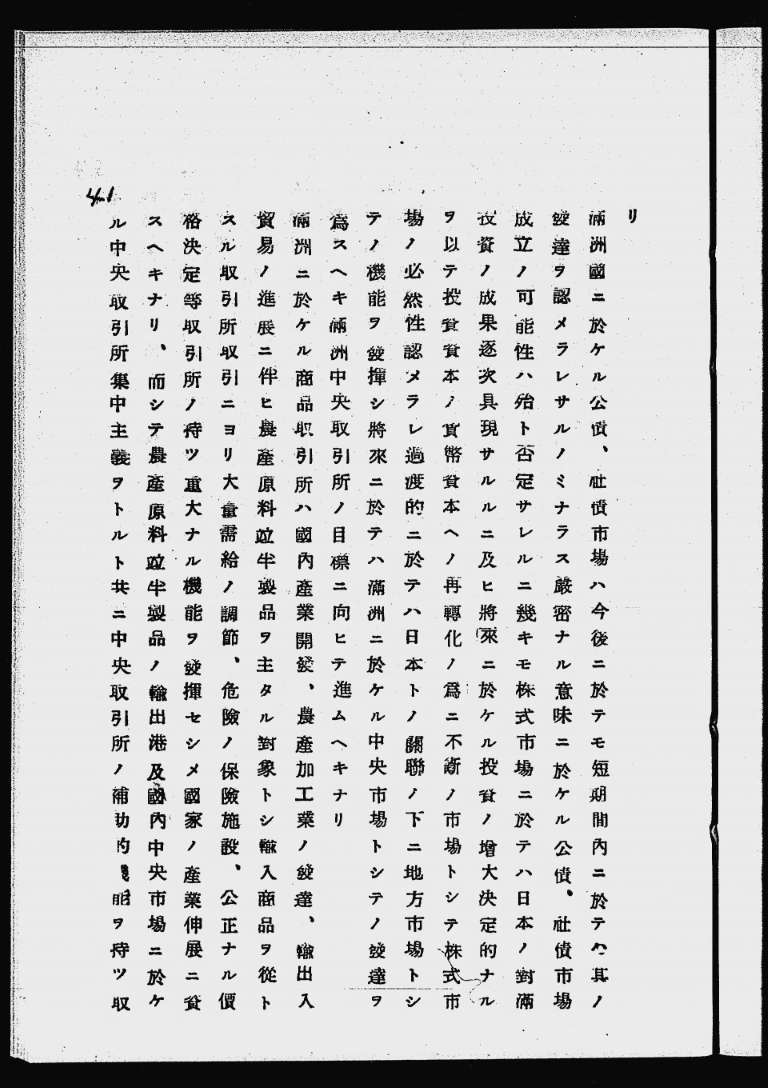 リ
滿洲國ニ於ケル公債、社債市場ハ今後ニ於テモ短期間内ニ於テハ其ノ
發達ヲ認メラレサルノミナラス嚴密ナル意味ニ於ケル公債、社債市場
成立ノ可能性ハ殆ト否定サレルニ幾キモ株式市場ニ於テハ日本ノ對滿
投資ノ成果逐次具現サルルニ及ヒ將來ニ於ケル投資ノ增大決定的ナル
ヲ以テ投資資本ノ貨幣資本ヘノ再轉化ノ爲ニ不斷ノ市場トシテ株式市
場ノ必然性認メラレ過渡的ニ於テハ日本トノ關聯ノ下ニ地方市場トシ
テノ機能ヲ發揮シ將來ニ於テハ滿洲ニ於ケル中央市場トシテノ發達ヲ
爲スヘキ滿洲中央取引所ノ目標ニ向ヒテ進ムヘキナリ
滿洲ニ於ケル商品取引所ハ國內產業開發、農產加工業ノ發達、輸出入
貿易ノ進展ニ伴ヒ農產原料竝半製品ヲ主タル對象トシ輸入商品ヲ從ト
スル取引所取引ニヨリ大量需給ノ調節、危險ノ保險施設、公正ナル價
格決定等取引所ノ持ツ重大ナル機能ヲ發揮セシメ國家ノ產業伸展ニ資
スヘキナリ、而シテ農產原料竝半製品ノ輸出港及國內中央市場ニ於ケ
ル中央取引所集中主義ヲトルト共ニ中央取引所ノ補助的機能ヲ持ツ取
41